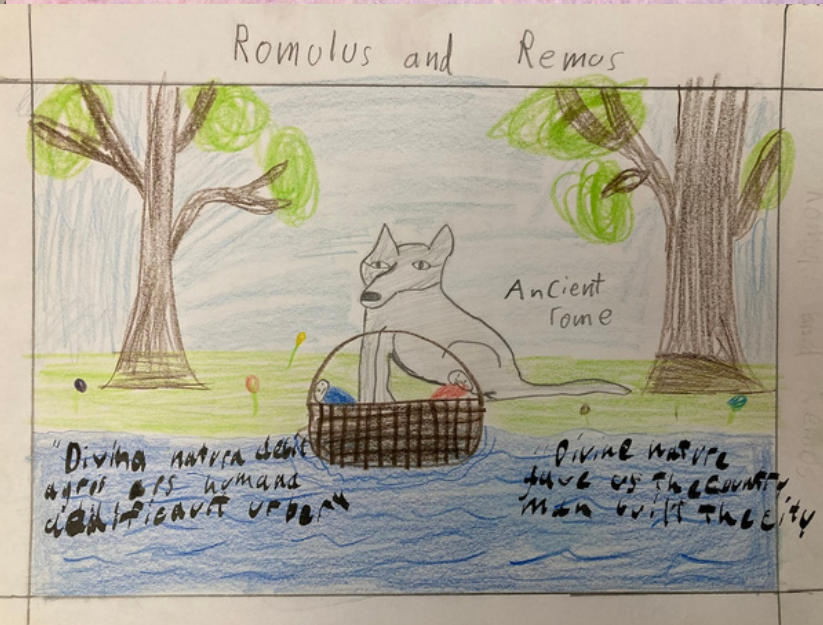 Romulus and Remus
Ancient
rome
"Divina natura debit
agros ars humana
aedificavit urbes"
"Divine nature
gave us the country
Man built the city